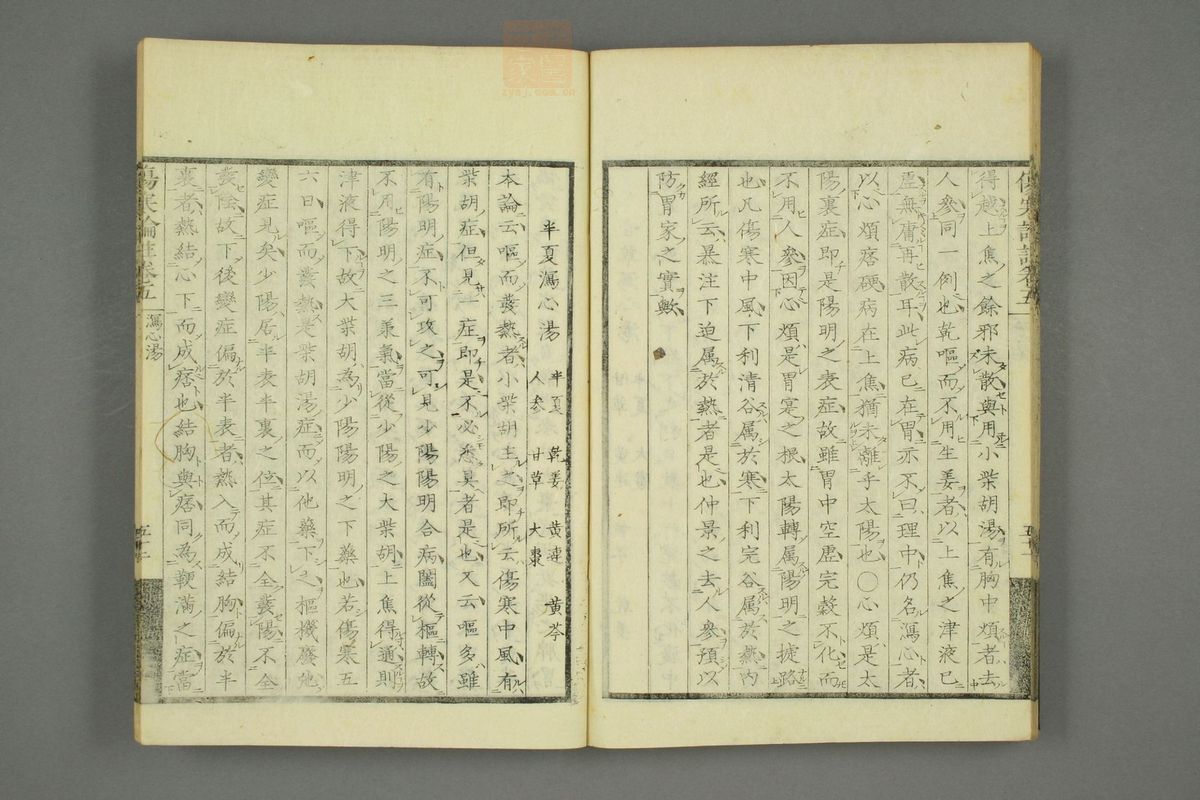 得越上焦之餘邪未散與用小柴胡湯有胸中煩者去
人參同一例也乾嘔而不用生姜者以上焦之津液已
虛無庸再散耳此病已在胃亦不曰理中仍名瀉心者
以心煩痞硬病在上焦猶未離乎太陽也〇心煩是太
陽裏症即是陽明之表症故雖胃中空虛完穀不化而
不用人參因心煩是胃寔之根太陽轉属陽明之捷路
也凡傷寒中風下利清谷属於寒下利完谷属於熱內
經所云暴注下迫属於熱者是也仲景之去人參預以
防胃家之實歟
半夏瀉心湯
半夏 乾姜 黄連 黄芩
人参 甘草 大棗
本論云嘔而發熱者小柴胡主之即所云傷寒中風有
柴胡症但見一症即是不必悉具者是也又云嘔多雖
有陽明症不可攻之可見少陽陽明合病闔從樞轉故
不用陽明之三承氣當從少陽之大柴胡上焦得通則
津液得下故大柴胡為少陽陽明之下藥也若傷寒五
六日嘔而發熱是柴胡湯症而以他藥下之樞機廢弛
變症見矣少陽居半表半裏之位其症不全發陽不全
發陰故下後變症偏於半表者熱入而成結胸偏於半
裏者熱結心下而成痞也結胸與痞同為鞕滿之症當
傷寒論註卷五
瀉心湯